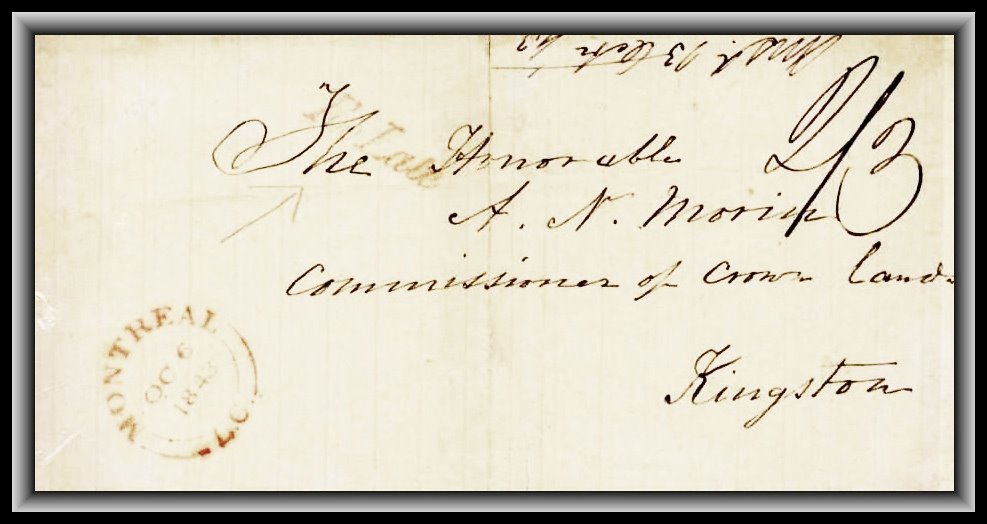 The Honorable 2/3
A. N. Morin
Commissioner of Crown Lands
Kingston
MONTREAL L.C.
OC 6
1843
Too Late